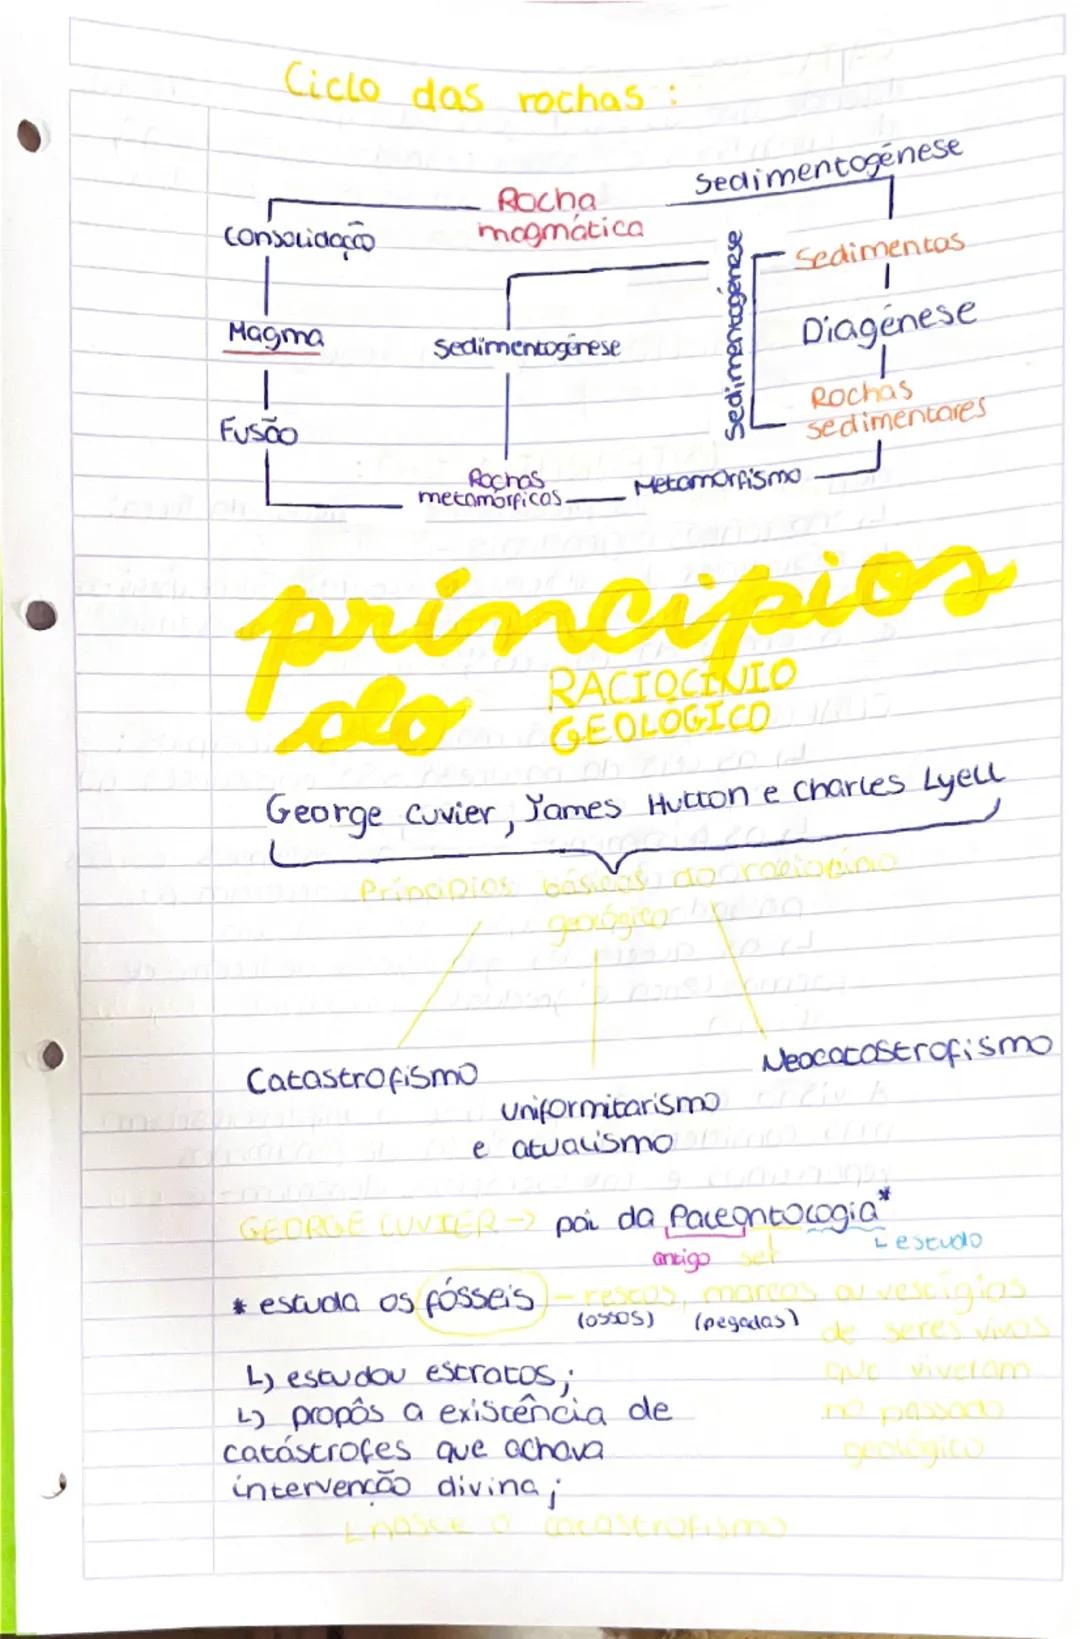 Ciclo das rochas :
Sedimentogénese
Rocha
magmática
Consolidação
Sedimentogénese
Sedimentos
Magma
Sedimentogénese
Diagénese
Rochas
sedimentares
Fusão
Rochas
metamórficas
Metamorfismo
princípios
do RACIOCÍNIO
GEOLÓGICO
George Cuvier, James Hutton e Charles Lyell
Princípios básicos do raciocínio
geológico
Catastrofismo
Neocatastrofismo
uniformitarismo
e atualismo
GEORGE CUVIER → pai da Paleontologia*
antigo ser
↳ estudo
* estuda os fósseis - restos, marcas ou vestígios
(ossos) (pegadas)
de seres vivos
que viveram
no passado
geológico
↳ estudou estratos;
↳ propôs a existência de
catástrofes que achava
intervenção divina;
↳ nasce o catastrofismo